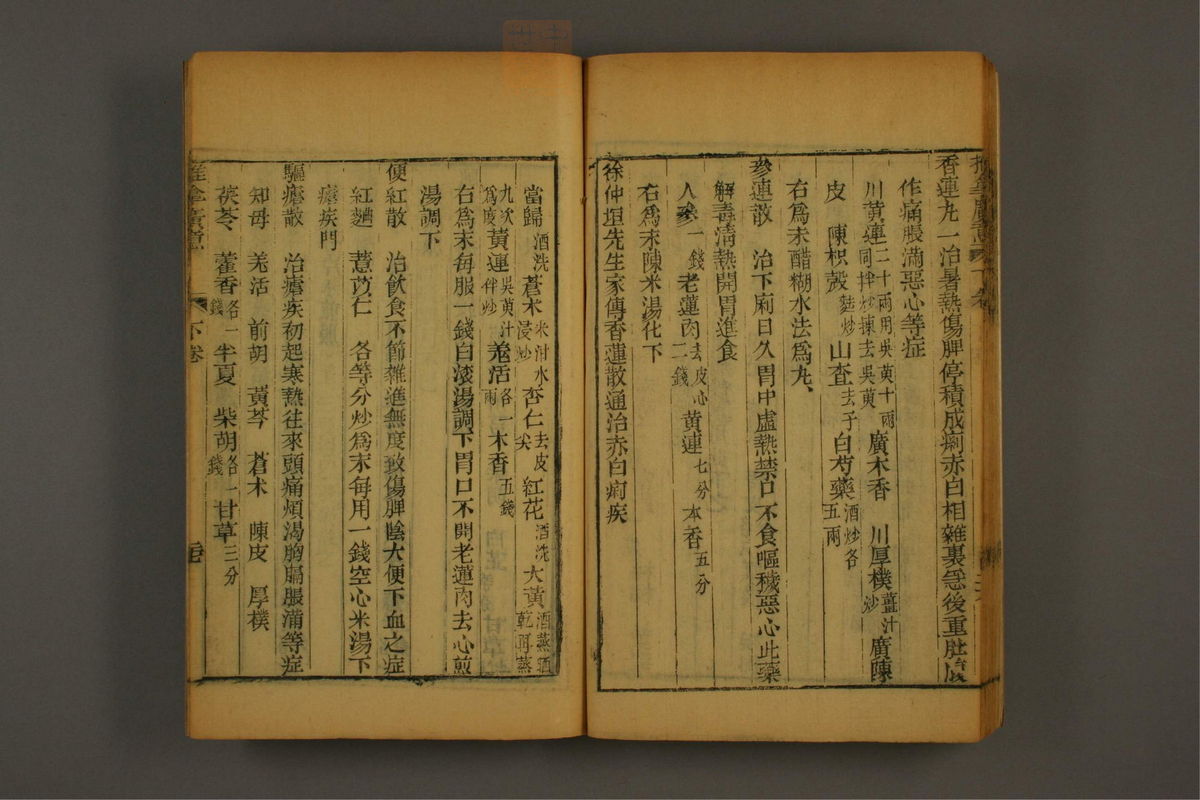 香連丸一治暑熱傷脾停積成痢赤白相雜裏急後重肚腹
作痛脹滿惡心等症
川黄連二十兩用吳萸十兩同拌炒揀去吳萸 廣木香 川厚樸薑汁炒 廣陳
皮 陳枳殼麩炒 山查去子 白芍藥酒炒各五兩
右爲末醋糊水法爲丸、
參連散 治下痢日久胃中虛熱禁口不食嘔穢惡心此藥
解毒淸熱開胃進食
人參一錢 老蓮肉去皮心二錢 黄連七分 木香五分
右爲末陳米湯化下
徐仲垣先生家傳香蓮散通治赤白痢疾
當歸酒洗 蒼朮米泔水浸炒 杏仁去皮尖 紅花酒洗 大黄酒蒸晒乾再蒸
九次爲度 黄連吳萸汁伴炒 羌活各一兩 木香五錢
右爲末每服一錢白滚湯調下胃口不開老蓮肉去心煎
湯調下
便紅散 治飲食不節雜進無度致傷脾陰大便下血之症
紅麯 薏苡仁 各等分炒爲末每用一錢空心米湯下
瘧疾門
驅瘧散 治瘧疾初起寒熱往來頭痛煩渴胸膈脹滿等症
知母 羌活 前胡 黄芩 蒼朮 陳皮 厚樸
茯苓 藿香各一錢 半夏 柴胡各一錢 甘草三分
下卷